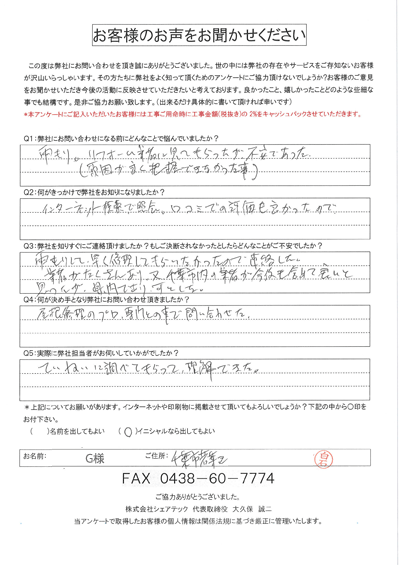 お客様のお声をお聞かせください
この度は弊社にお問い合わせを頂き誠にありがとうございました。世の中には弊社の存在やサービスをご存知ないお客様
が沢山いらっしゃいます。その方たちに弊社をよく知って頂くためのアンケートにご協力頂けないでしょうか?お客様のご意見
をお聞かせいただき今後の活動に反映させていただきたいと考えております。良かったこと、嬉しかったことどのような些細な
事でも結構です。是非ご協力お願い致します。(出来るだけ具体的に書いて頂ければ幸いです)
*本アンケートにご記入いただいたお客様には工事ご用命時に工事金額(税抜き)の2%をキャッシュバックさせていただきます。
Q1:弊社にお問い合わせになる前にどんなことで悩んでいましたか?
雨もり。リフォーム業者に見てもらったが、不安であった。
(原因が良く把握できなかった事)
Q2:何がきっかけで弊社をお知りになりましたか?
インターネット検索で照会。口コミでの評価も良かったので
Q3:弊社を知りすぐにご連絡頂けましたか?もしご決断されなかったとしたらどんなことがご不安でしたか?
雨もりして、早く修理してもらいたかったので連絡した。
業者がたくさんあり、又千葉市内の業者が今後も含めて良いと
思ったが、県内であり
Q4:何が決め手となり弊社にお問い合わせ頂きましたか?
屋根修理のプロ、専門との事で問い合わせた。
Q5:実際に弊社担当者がお伺いしていかがでしたか?
ていねいに調べてもらって、理解できた。
*上記についてお願いがあります。インターネットや印刷物に掲載させて頂いてもよろしいでしょうか?下記の中から〇印を
お付下さい。
( )名前を出してもよい (〇)イニシャルなら出してもよい
お名前: G様 ご住所: 千葉市若葉区
FAX 0438-60-7774
ご協力ありがとうございました。
株式会社シェアテック 代表取締役 大久保 誠二
当アンケートで取得したお客様の個人情報は関係法規に基づき厳正に管理いたします。